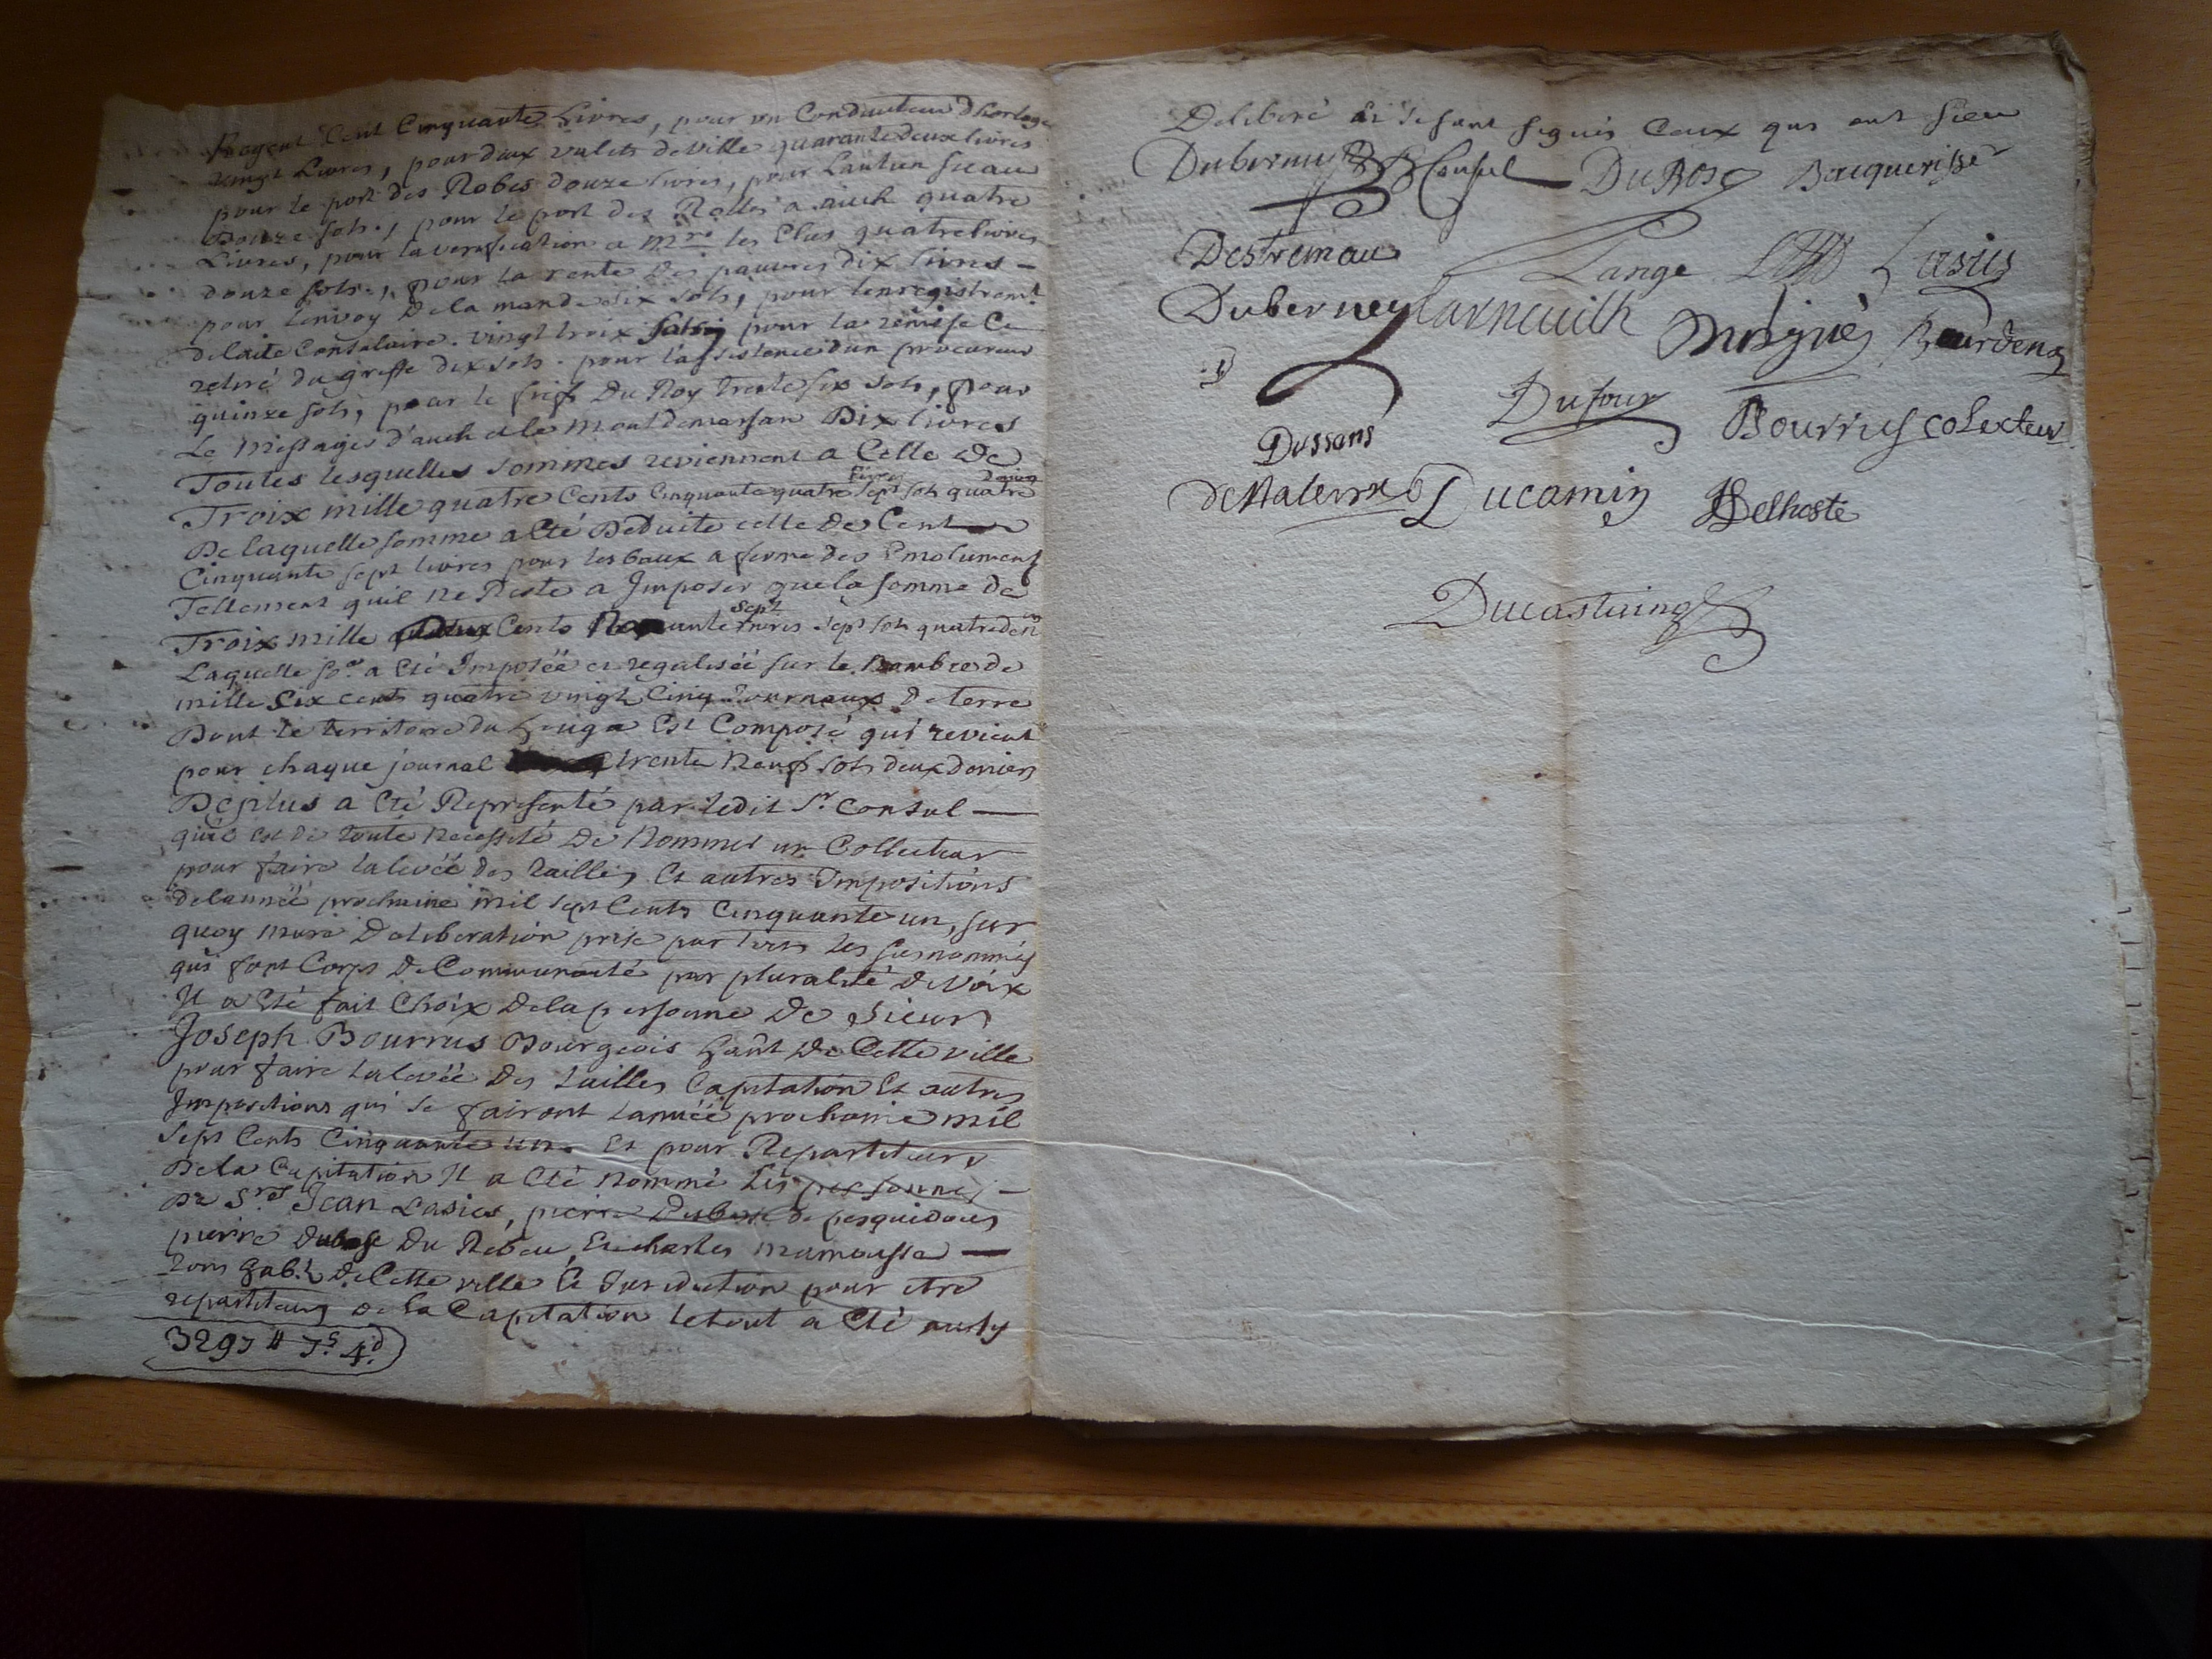 Regent Cent Cinquante Livres, pour un Conducteur d'horloge
vingt Livres, pour deux valets de ville quarante deux livres
pour le port des Robes douze livres, pour
Douze sols, pour le port des Rolles a auch quatre
Livres, pour la veriffication a les Elus quatre livres
douze sols, pour la rente des pauvres dix livres
pour lenvoy de la mande six sols, pour lenregistremt
Consulaire vingt trois sols pour la remise Ce
retiré du greffe dix sols pour lassistence dun procureur
quinze sols, pour le Du Roy trente six sols, pour
Le Messager d'auch et le Mont de marsan Dix livres
Toutes lesquelles Sommes reviennent a Celle De
Troix mille quatre Cents Cinquante quatre livres sept sols quatre deniers
De laquelle somme a Eté Deduite celle de Cent
Cinquante sept livres pour les baux a ferme des Emoluments
Tellement quil ne Reste a Imposer que la somme de
Troix mille Deux Cents sept livres sept sols quatre den
Laquelle So.e a Eté Imposéé et regaliséé sur le Nombre de
mille Six cents quatre vingt Cinq Journaux De terre
Dont le territoire du houga Est Composé qui revient
pour chaque journal trente Neuf sols deux deniers
De plus a Eté Representé par ledit Sr. Consul
quil est de toute necessité De Nommer un Collecteur
pour faire la levéé des tailles Et autres Impositions
de lannéé prochaine mil sept Cents Cinquante un, sur
quoy mure Deliberation prise par tous les susnommés
qui font Corps De Communauté par pluralité de Voix
Il a Eté fait Choix de la personne De Sieur
Joseph Bourrus Bourgeois hant De Cette ville
pour faire la levéé Des tailles Capitation Et autres
Impositions qui se fairont lannéé prochaine mil
Sept Cents Cinquante un. Et pour Repartiteurs
De la Capitation Il a Eté nommé Les personnes
De Srs Jean Lasies, pierre Dubosc de pesquidous
pierre Dubosc Du Et charles mamousse
Tous hab.ts De Cette ville Et Jurisdiction pour etre
repartiteurs de la Capitation le tout a Eté ainsy
3297 ₶ 7s 4d
Deliberé et se sont signés Ceux qui ont sceu
Duberney Consul DuBosc
Destremau Lange Lasies
Duberney Larneuilh
Dussans Dufour Bourrus colecteur
Ducamin Delhoste
Ducastaing